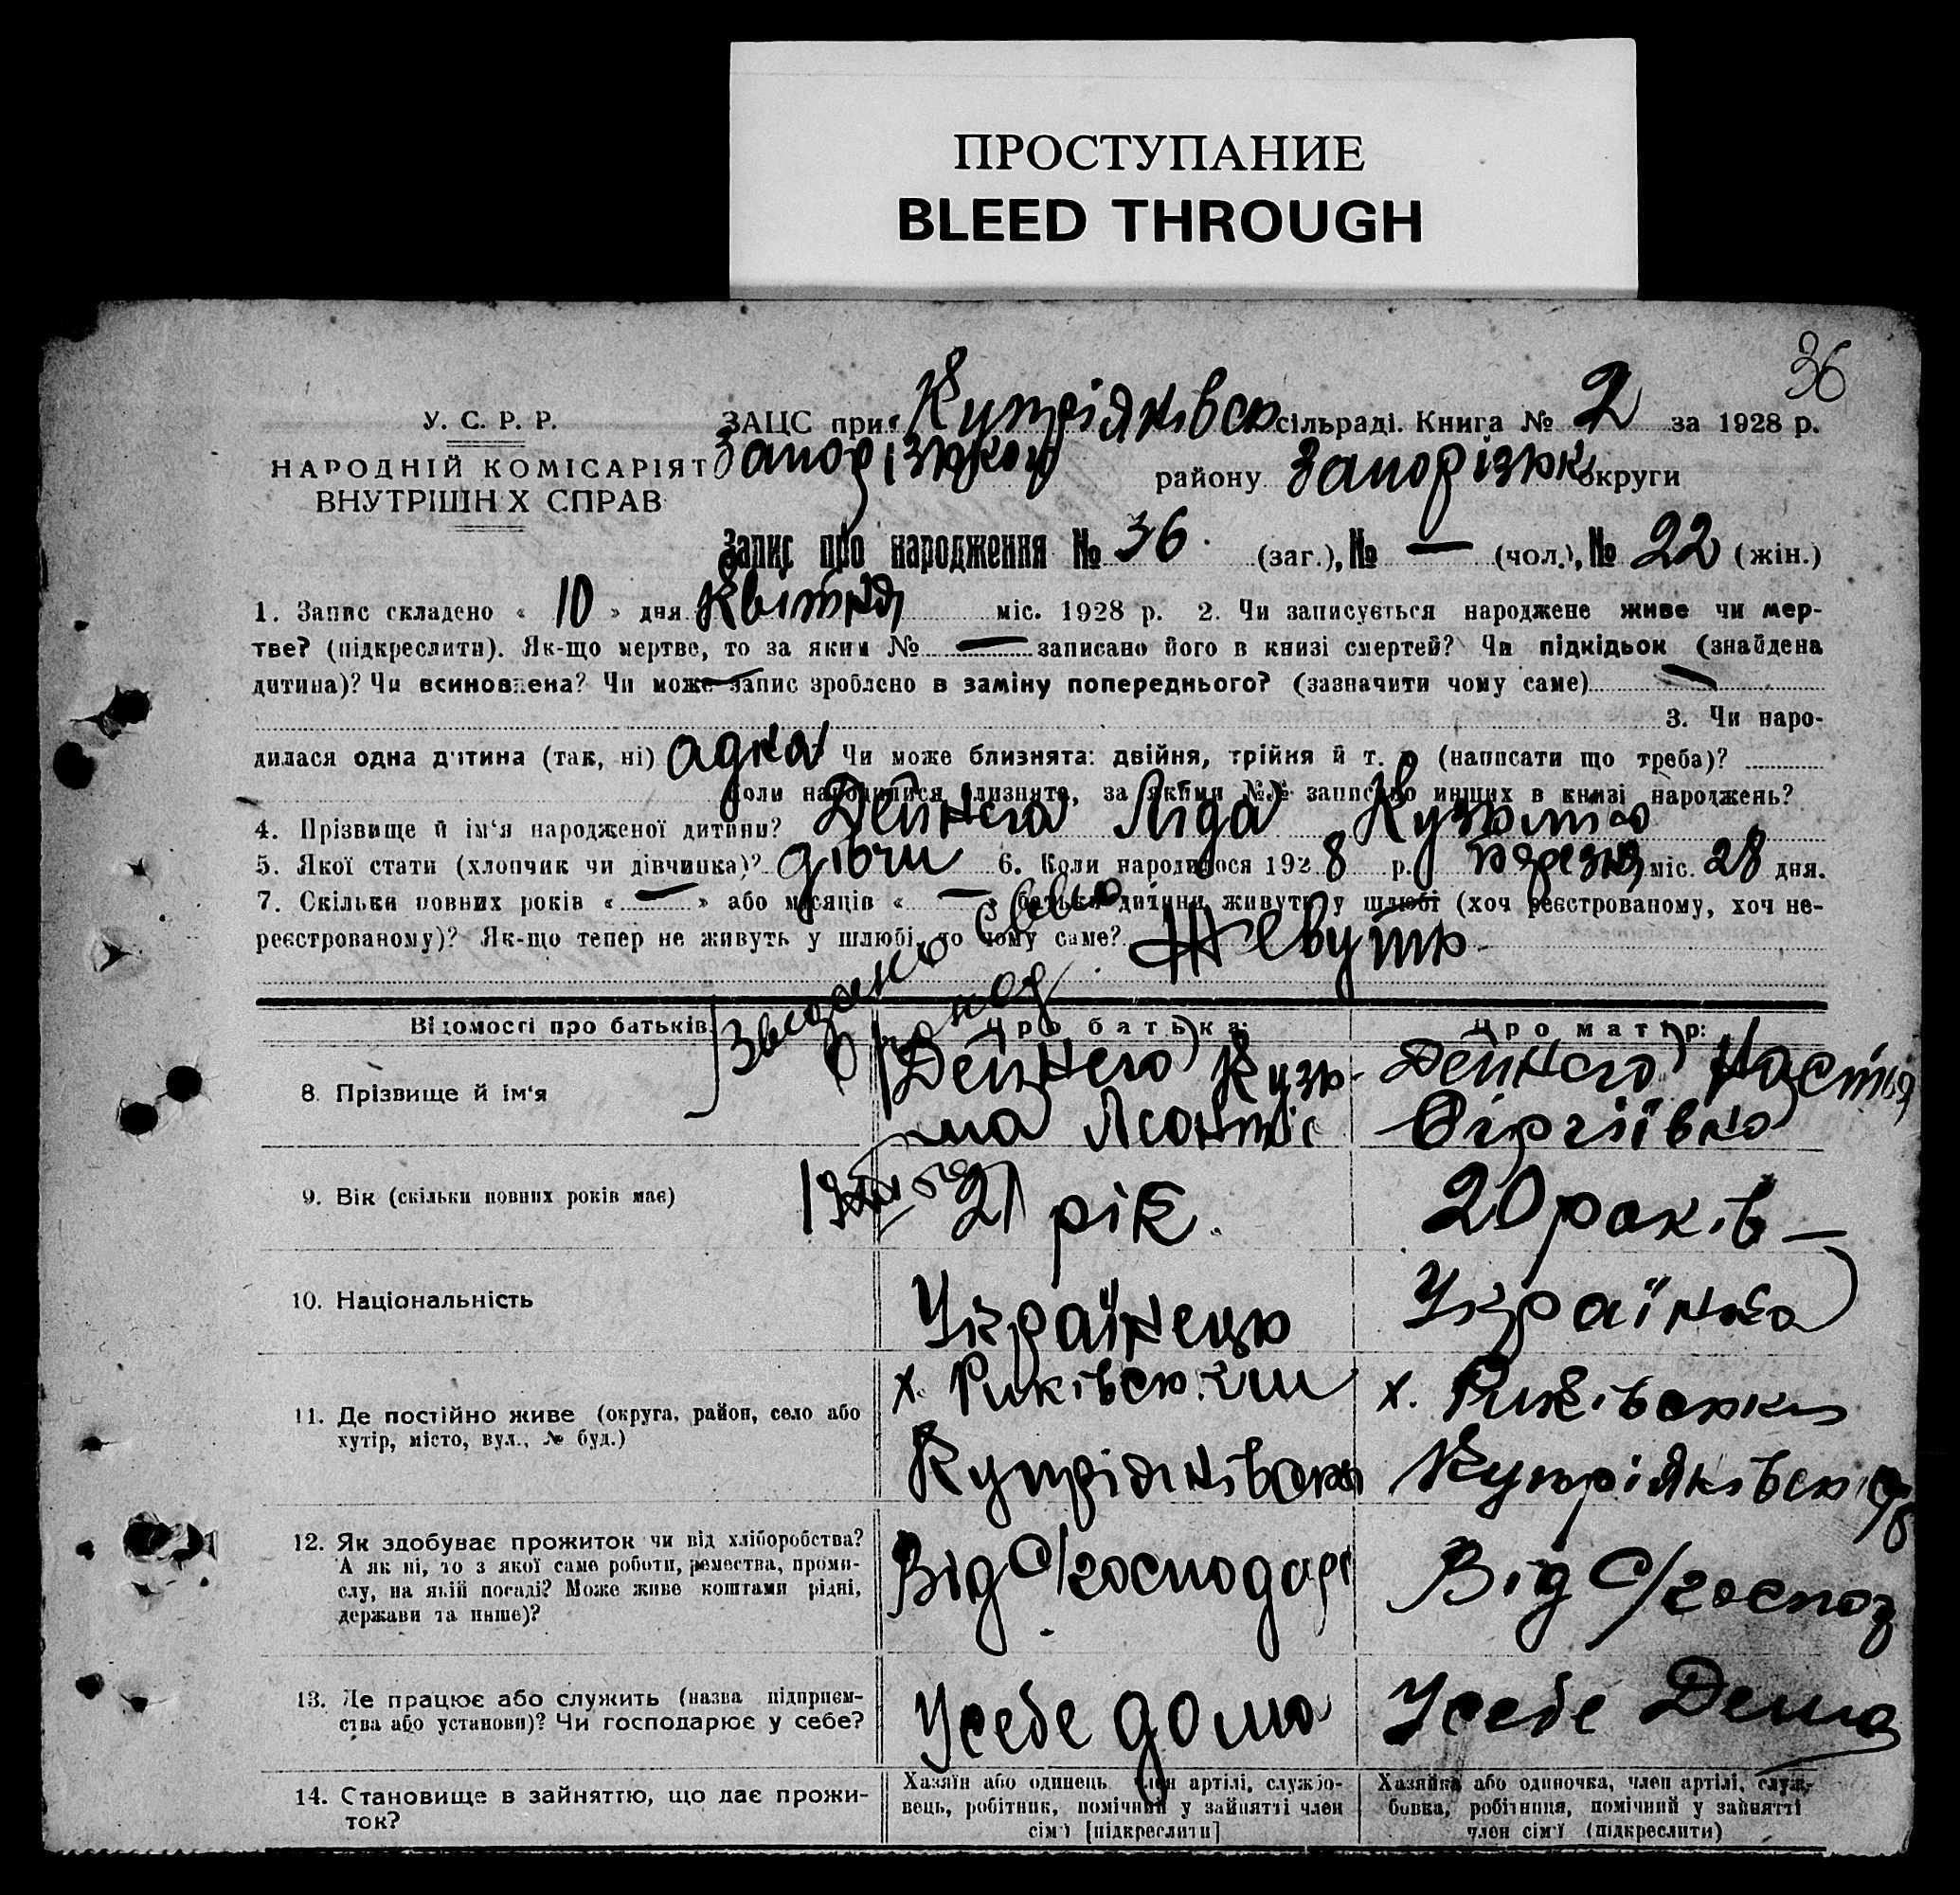 ПРОСТУПАНИЕ
BLEED THROUGH
36
У. С. Р. Р.
НАРОДНІЙ КОМІСАРІЯТ
ВНУТРІШН Х СПРАВ
ЗАЦС при Купріянівськ сільраді. Книга № 2 за 1928 р.
Запорізького району Запорізьк округи
Запис про народження № 36 (заг.), № — (чол.), № 22 (жін.)
1. Запис складено « 10 » дня квітня міс. 1928 р. 2. Чи записується народжене живе чи мер-
тве? (підкреслити). Як-що мертве, то за яким № — записано його в книзі смертей? Чи підкідьок (знайдена
дитина)? Чи всиновлена? Чи може запис зроблено в заміну попереднього? (зазначити чому саме) —
3. Чи наро-
дилася одна дитина (так, ні) адна Чи може близнята: двійня, трійня й т. д (написати що треба)?
Коли народилися близнята, за якими №№ записано инших в книзі народжень?
4. Прізвище й ім'я народженої дитини? Дейнега Ліда
5. Якої стати (хлопчик чи дівчинка)? дівчи 6. Коли народилося 1928 р. березня міс. 28 дня.
7. Скільки повних років « — » або місяців « — » батьки дитини живуть у шлюбі (хоч реєстрованому, хоч не-
реєстрованому)? Як-що тепер не живуть у шлюбі, то чому саме? Жевуть
Відомості про батьків Про батька: Про матір:
8. Прізвище й ім'я
Дейнега Кузь-
ма Леонтіє
Дейнега Настя
9. Вік (скільки повних років має)
21 рік.
20 років —
10. Національність
Українець
Українка
11. Де постійно живе (округа, район, село або
хутір, місто, вул., № буд.)
х.
Купріянівськ
х.
Купріянівськ с/р
12. Як здобуває прожиток чи від хліборобства?
А як ні, то з якої саме роботи, ремества, проми-
слу, на якій посаді? Може живе коштами рідні,
держави та инше)?
Від С/господарс
Від С/господ
13. Де працює або служить (назва підприєм-
ства або установи)? Чи господарює у себе?
Усебе дома
Усебе Дома
14. Становище в зайняттю, що дає прожи-
ток?
Хазяїн або одинець член артілі, службо-
вець, робітник, помічний у зайнятті член
сім'ї [підкреслити]
Хазяйка або одиночка, член артілі, служ-
бовка, робітниця, помічний у зайнятті
член сім'ї (підкреслити)